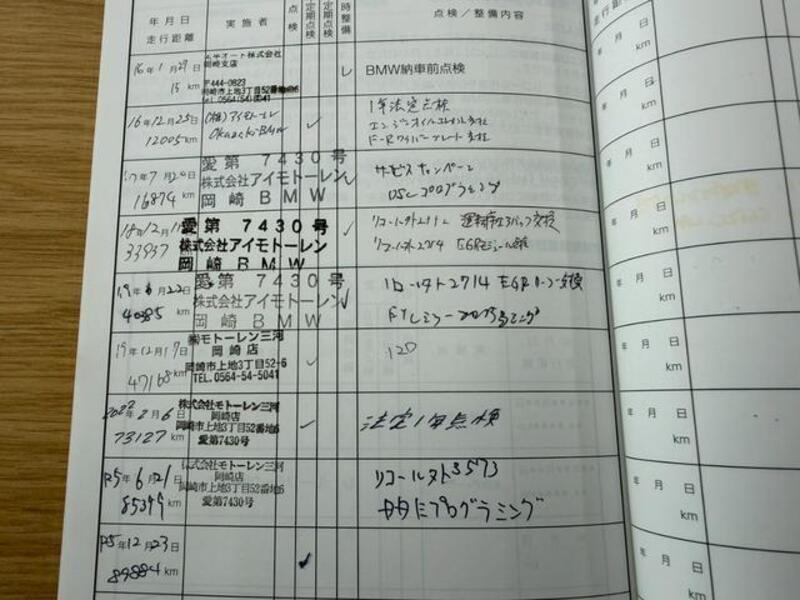 年月日
走行距離
実施者
点検
定期点検
定期点検
時整備
点検／整備内容
16年1月29日
15 km
岡崎支店
〒444-0823
岡崎市上地3丁目52番地6
TEL.0564(54)5041
レ
BMW納車前点検
16年12月25日
12005 km
(株)アイモトーレン
Okazaki BMW
✓
1年法定点検
エンジンオイルエレメント交換
17年7月20日
16874 km
愛第7430号
株式会社アイモトーレン
岡崎BMW
✓
サービスキャンペーン
DSCプログラミング
18年12月11日
33937 km
愛第7430号
株式会社アイモトーレン
岡崎BMW
✓
運転席エアバッグ交換
リコールネット2714 EGRモジュール点検
19年6月22日
40385 km
愛第7430号
株式会社アイモトーレン
岡崎BMW
✓
リコールネト2714 EGRクーラー交換
プログラミング
19年12月17日
47168 km
㈱モトーレン三河
岡崎店
岡崎市上地3丁目52-6
TEL.0564-54-5041
✓
120
2022年2月6日
73127 km
株式会社モトーレン三河
岡崎店
岡崎市上地3丁目52番地6
愛第7430号
✓
法定1年点検
R5年6月21日
85399 km
株式会社モトーレン三河
岡崎店
岡崎市上地3丁目52番地6
愛第7430号
リコールネト3573
プログラミング
R5年12月23日
89884 km
✓
km
年月日
km
年月日
km
年月日
km
年月日
km
年月日
km
年月日
km
年月日
km
年月日
km
年月日
km